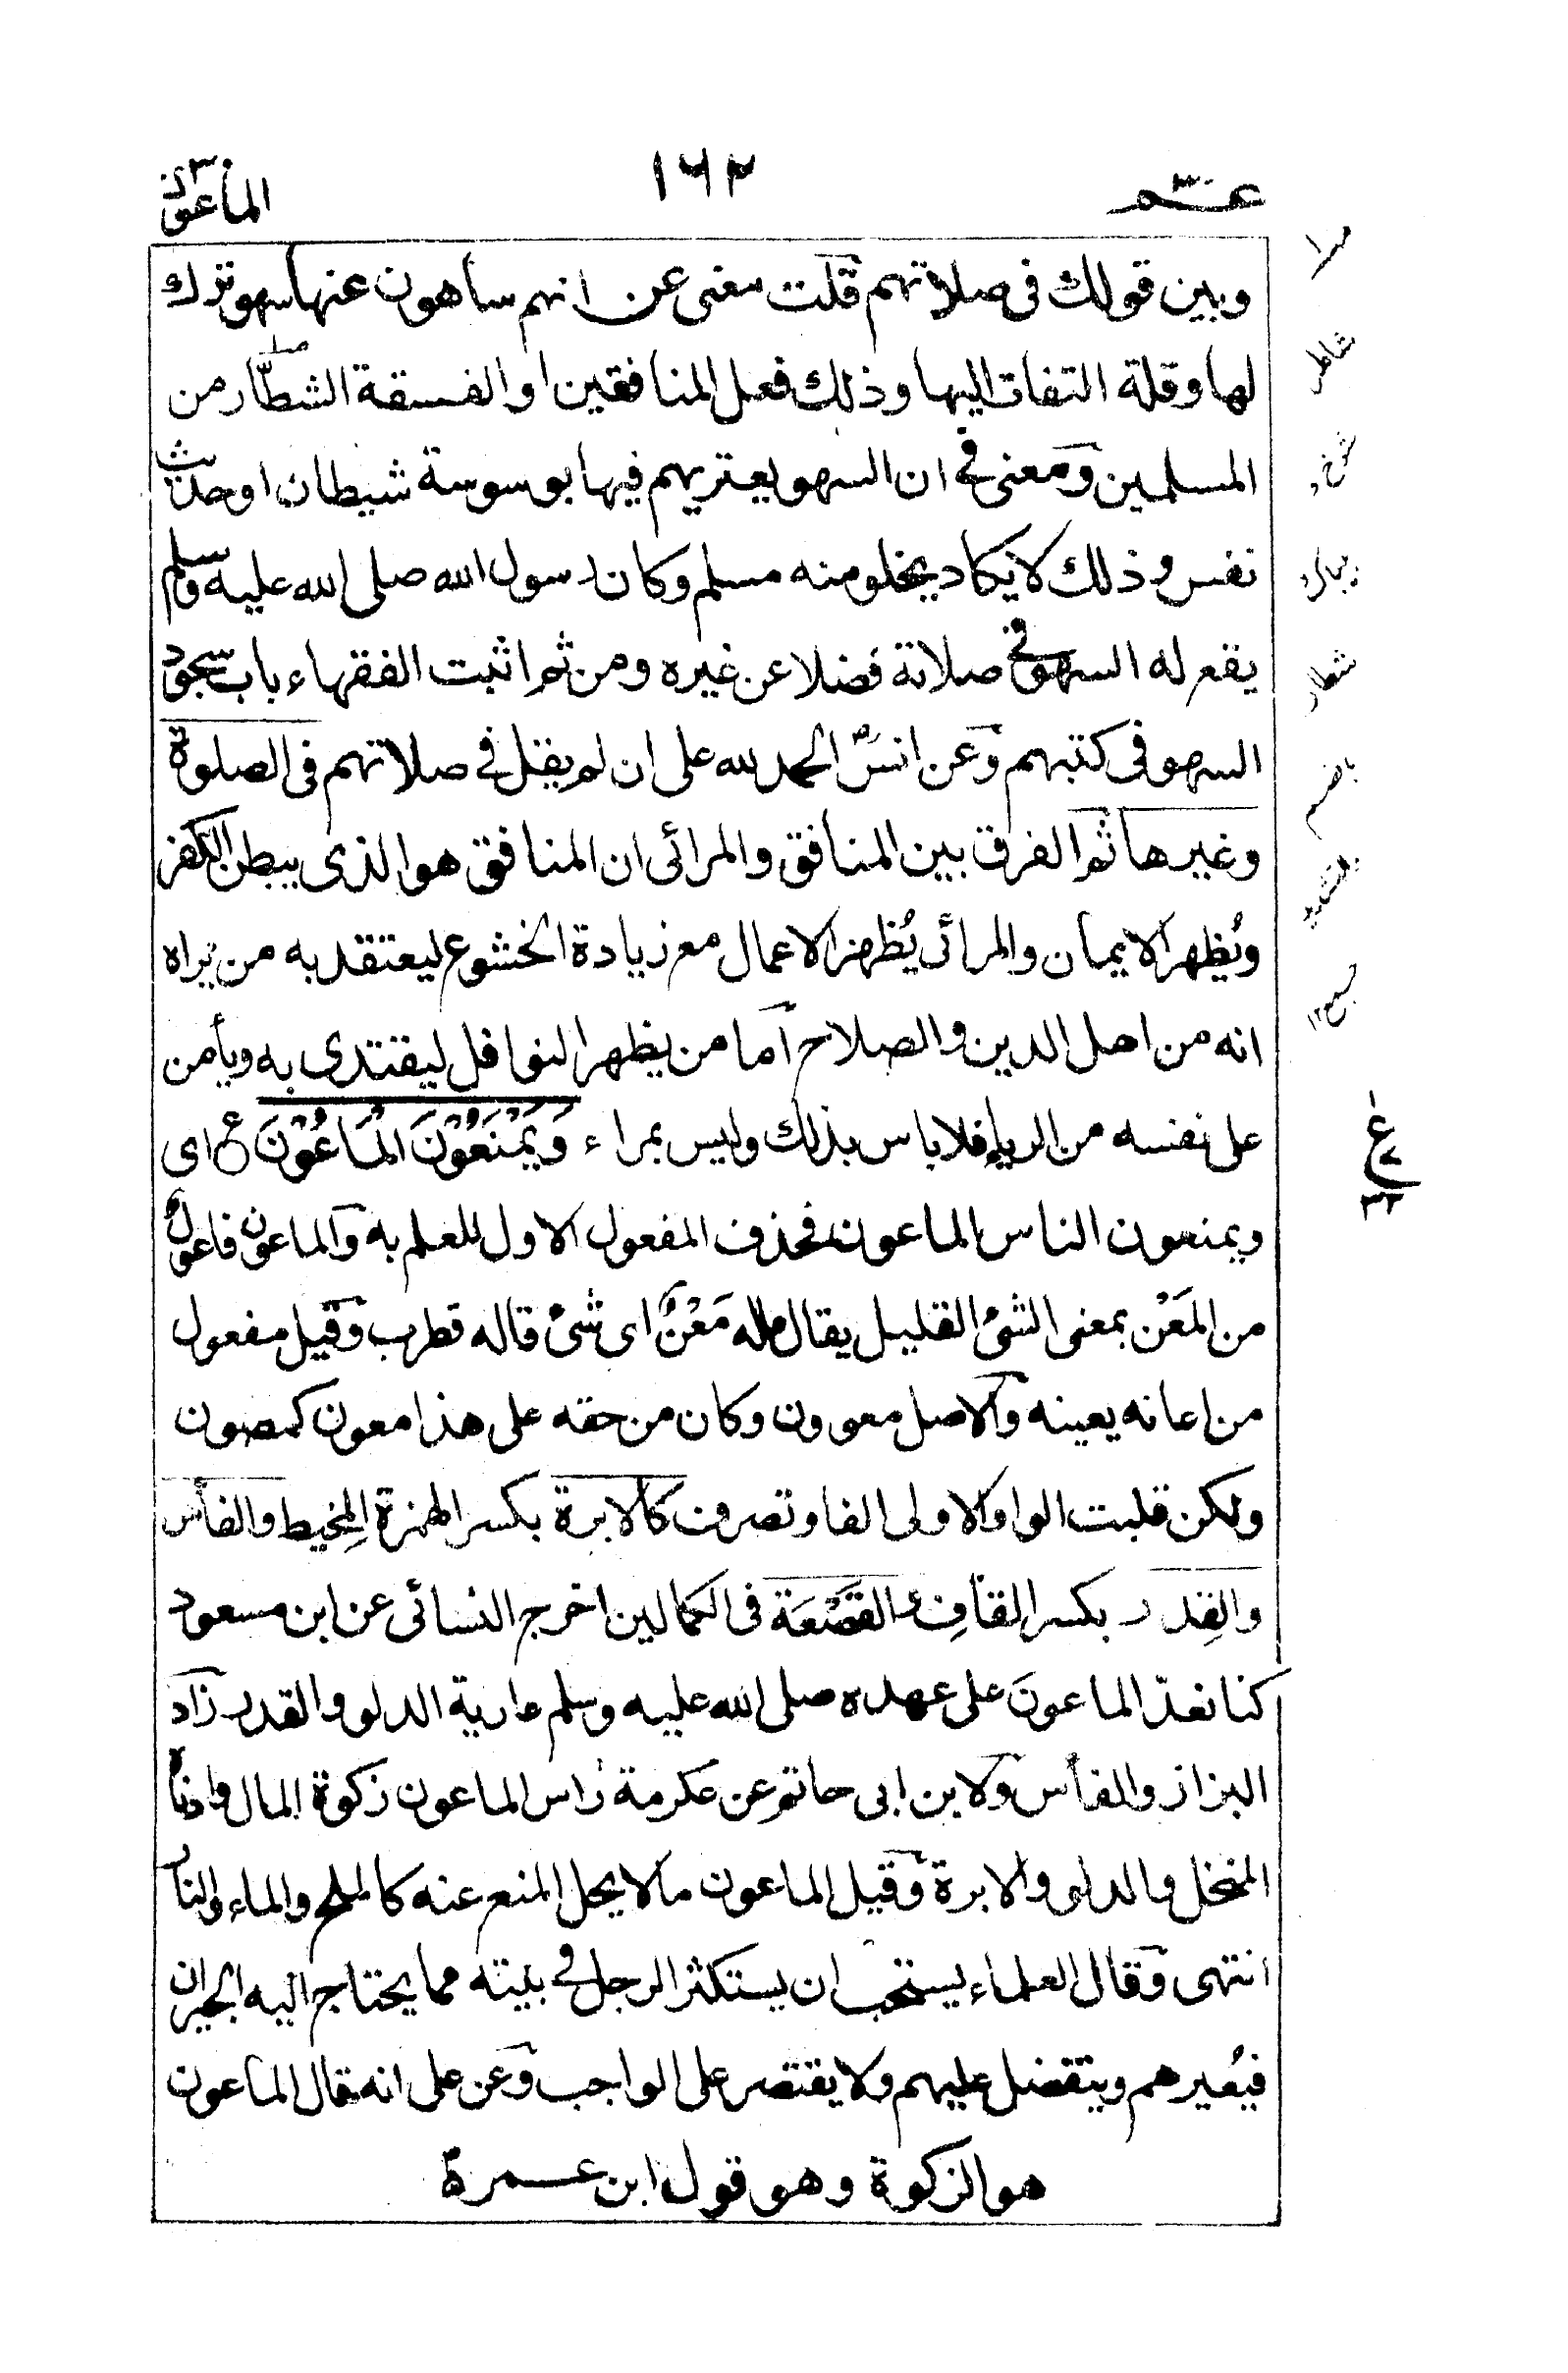 عـم ١٦٢ الماعون
وبين قولك فى صلاتهم قلت معنى عن انهم ساهون عنها سهو ترك
لها وقلة التفات اليها وذلك فعل المنافقين او الفسقة الشطّار من
المسلمين ومعنى فى ان السهو يعتريهم فيها بوسوسة شيطان او حديث
نفس وذلك لا يكاد يخلو منه مسلم وكان رسول الله صلى الله عليه وسلم
يقع له السهو فى صلاته فضلا عن غيره ومن ثم اثبت الفقهاء باب سجود
السهو فى كتبهم وعن انسؓ الحمد لله على ان لم يقل فى صلاتهم فى الصلوة
وغيرها ثم الفرق بين المنافق والمرائى ان المنافق هو الذى يبطن الكفر
ويُظهر الايمان والمرائى يُظهر الاعمال مع زيادة الخشوع ليعتقد به من يراه
انه من اهل الدين والصلاح اما من يظهر النوافل ليقتدى به ويأمن
على نفسه من الرياء فلا باس بذلك وليس بمراء وَيَمْنَعُوْنَ الْمَاعُوْنَ ع اى
ويمنعون الناس الماعون فحذف المفعول الاول للعلم به والماعون فاعولٌ
من المَعْن بمعنى الشئ القليل يقال ماله مَعْنٌ اى شئ قاله قطرب وقيل مفعول
من اعانه يعينه والاصل معوون وكان من حقه على هذا معون كمصون
ولكن قلبت الواو الاولى الفا وتصرف كالابرة بكسر الهمزة المِخيط والفأس
والقِدر بكسر القافِ والقَصْعَة فى الكمالين اخرج النسائى عن ابن مسعود
كنا نعدّ الماعونَ على عهده صلى الله عليه وسلم عارية الدلو والقدر زاد
البزاز والفأس ولابن ابى حاتم عن عكرمة رأس الماعون زكوة المال وادناه
المنخل والدلو والابرة وقيل الماعون ما لا يحل المنع عنه كالملح والماء والنار
انتهى وقال العلماء يستحب ان يستكثر الرجل فى بيته مما يحتاج اليه الجيران
فيُعيرهم ويتفضل عليهم ولا يقتصر على الواجب وعن على انه قال الماعون
هو الزكوة وهو قول ابن عـمرة
شاطر
شوخ و
بيباك
شطار
بالضم
والتشديد
ع